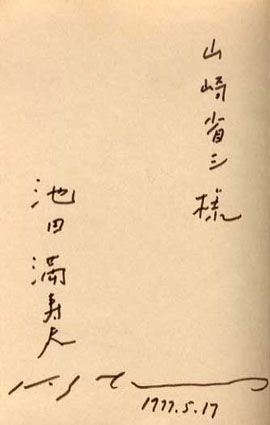 山崎省三様
池田満寿夫
1977.5.17